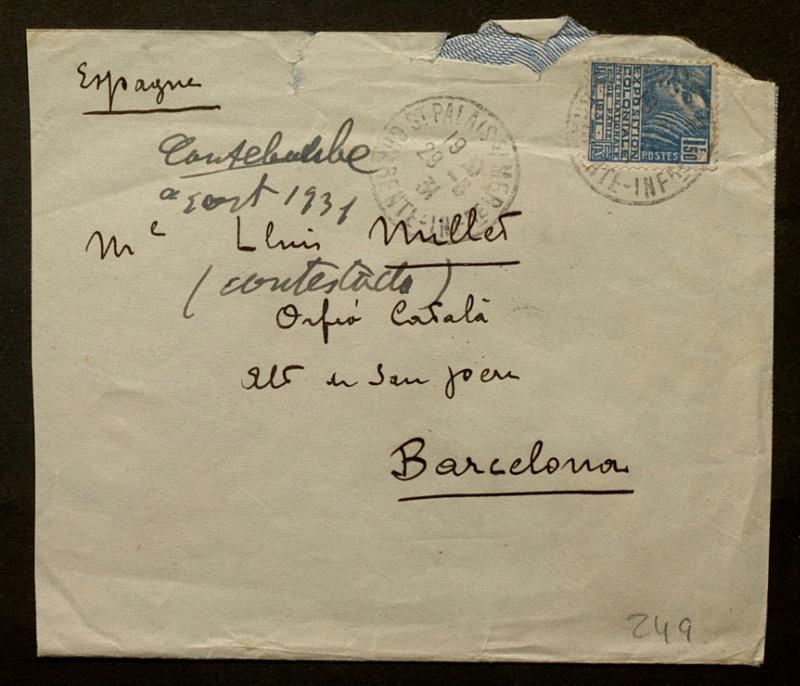 Espagne
ST PALAIS S MER
19
29 -8
31
RENTE-INF
EXPOSITION
COLONIALE
INTERNATIONALE
DE PARIS
1931
POSTES
1F50
TE-INFRE
agost 1931
Mr Lluis Millet
(contestada)
Orfeó Català
Alt de San Pere
Barcelona
249